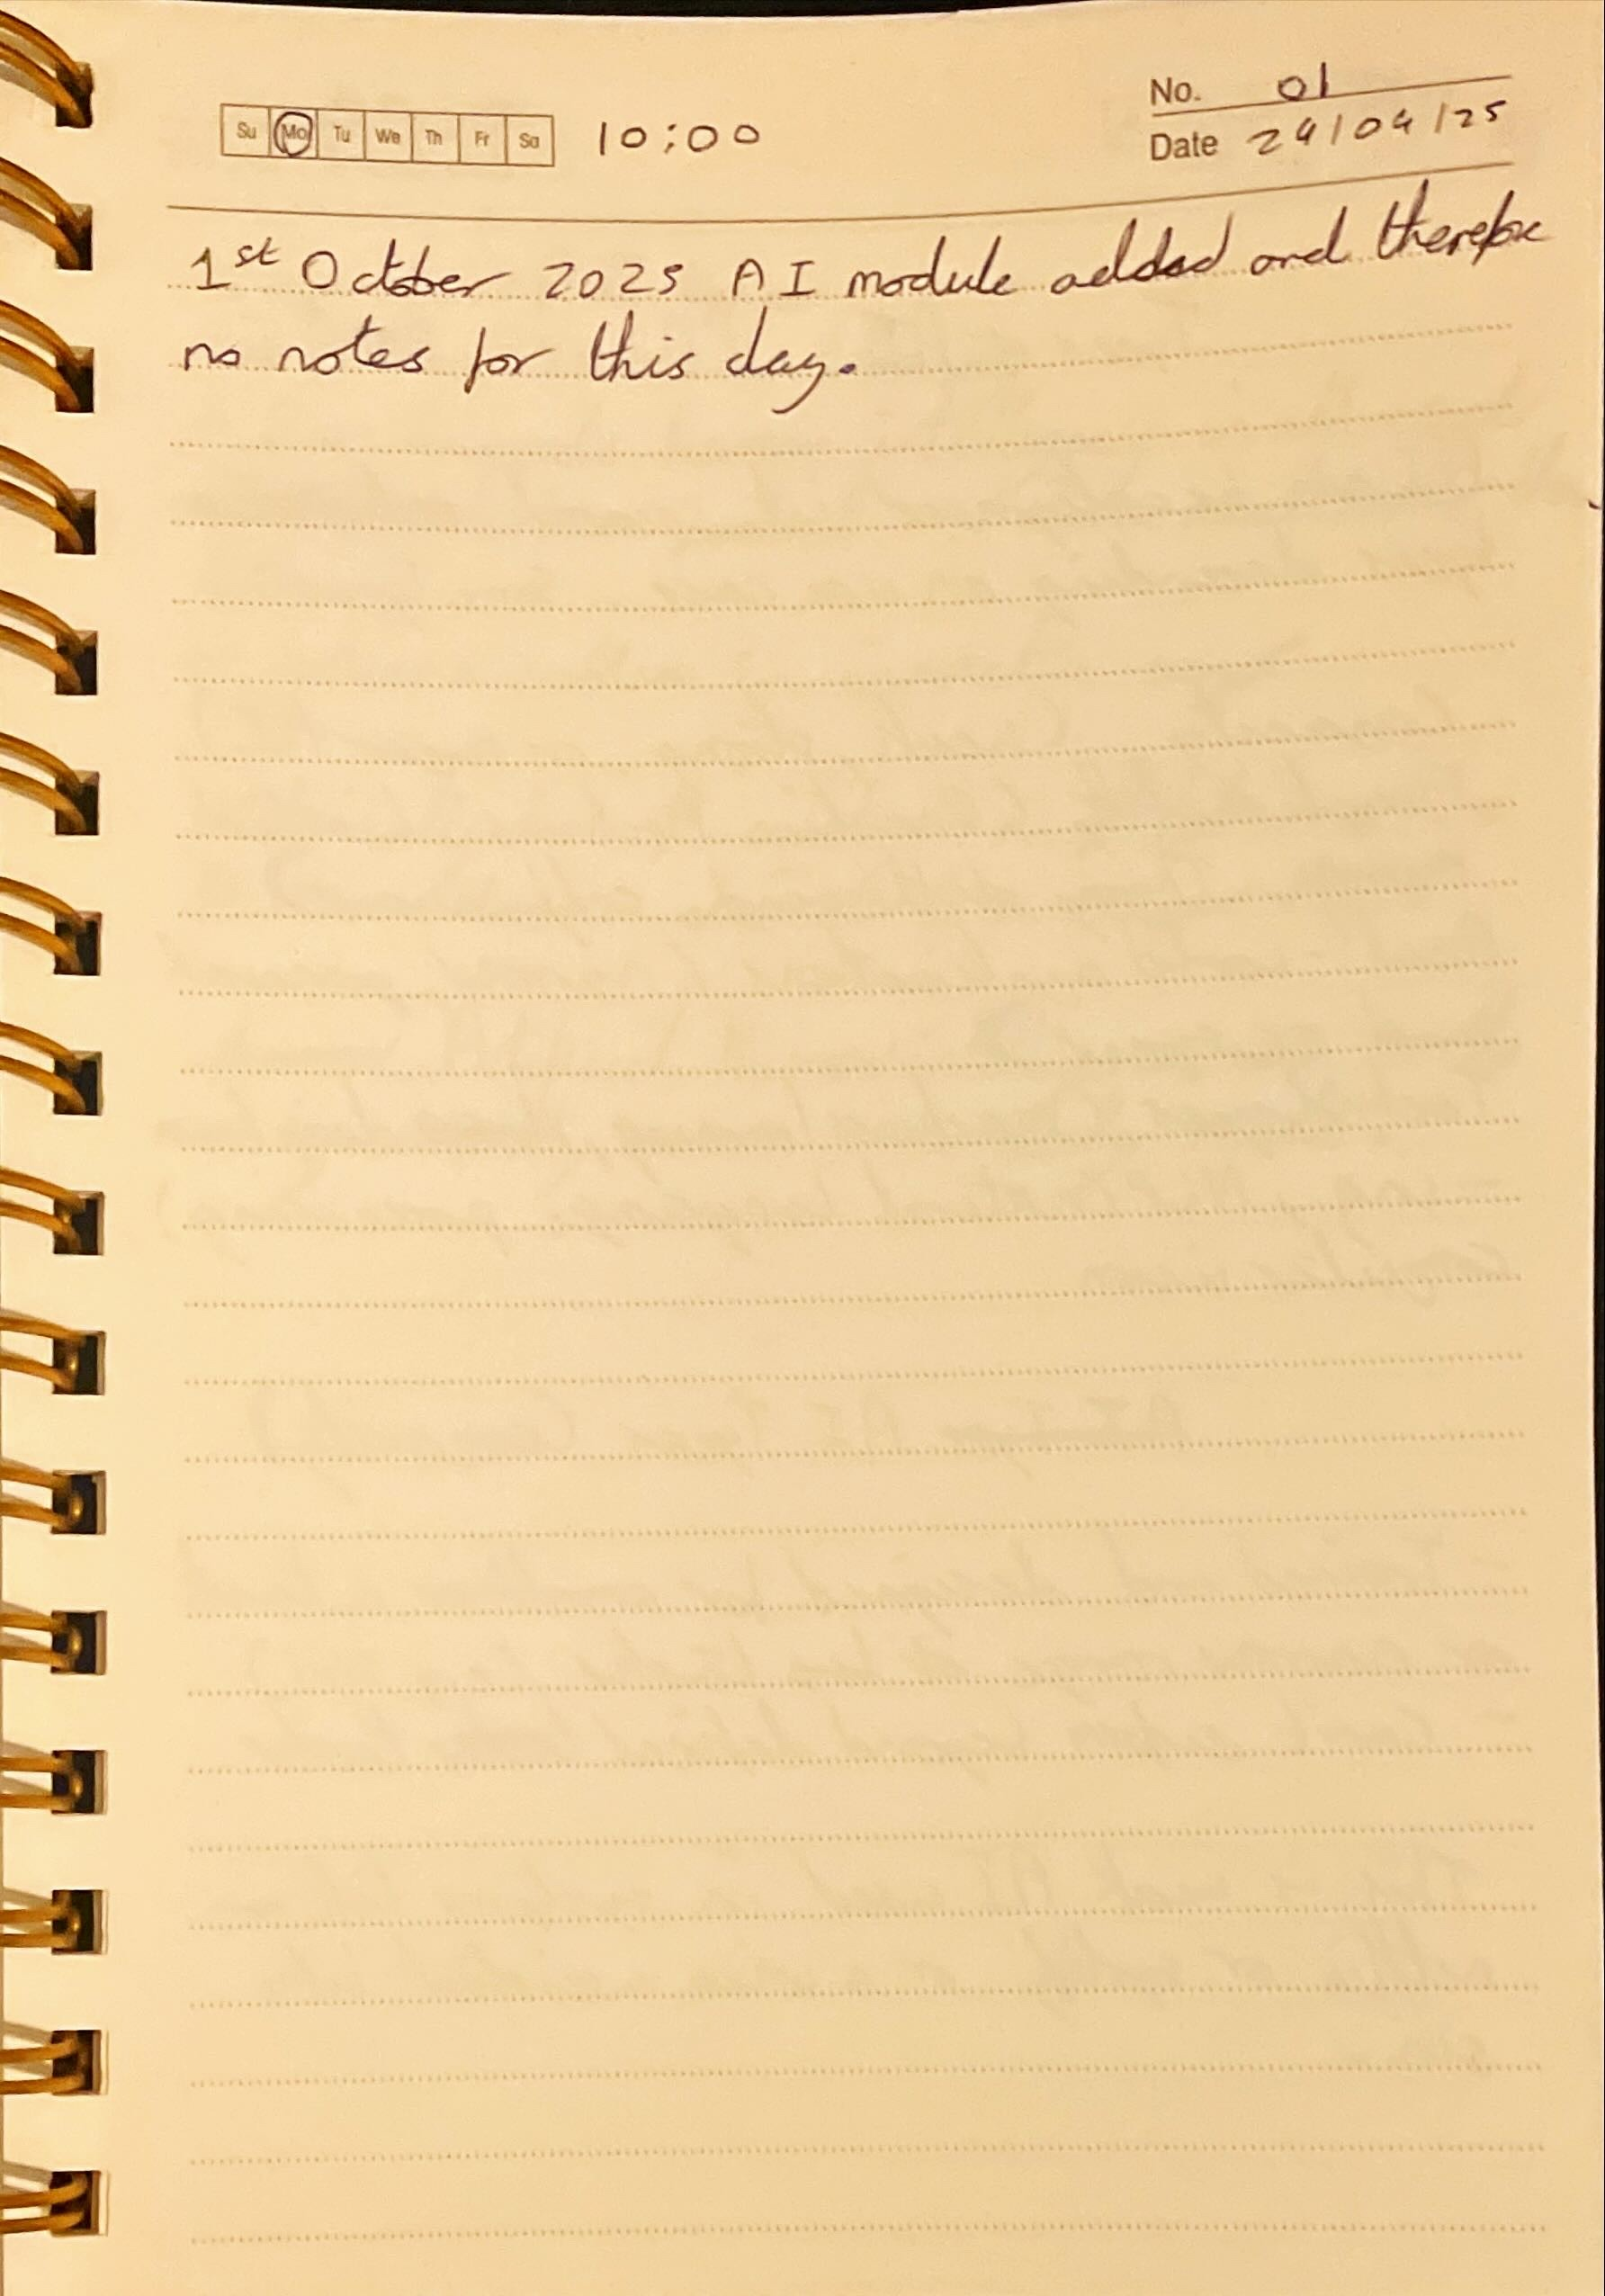 Su Mo Tu We Th Fr Sa 10:00
No. 01
Date 24/04/25
1st October 2025 AI module added and therefore
no notes for this day.